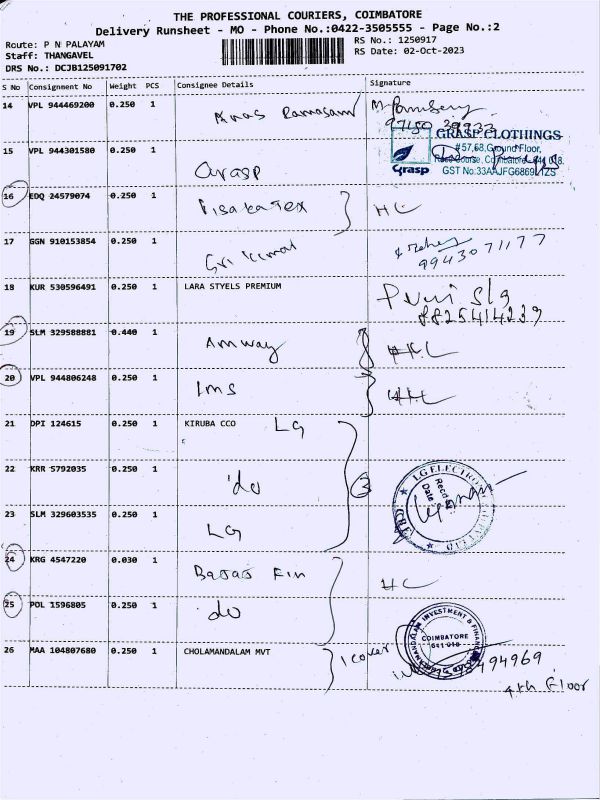 THE PROFESSIONAL COURIERS, COIMBATORE
Delivery Runsheet - MO - Phone No.:0422-3505555 - Page No.:2
Route: P N PALAYAM
RS No.: 1250917
Staff: THANGAVEL
RS Date: 02-Oct-2023
DRS No.: DCJB125091702
S No Consignment No Weight PCS Consignee Details Signature
14 VPL 944469200 0.250 1
15 VPL 944301580 0.250 1 Grasp
GRASP CLOTHINGS
#57,68,Ground Floor,
Grasp
16 EDQ 24579074 0.250 1 Pisaka Tex HL
17 GGN 910153854 0.250 1 Sri Kumal
9943071177
18 KUR 530596491 0.250 1 LARA STYELS PREMIUM
8825414239
19 SLM 329588881 0.440 1 Amway HL
20 VPL 944806248 0.250 1 Ims HL
21 DPI 124615 0.250 1 KIRUBA CCO LG
22 KRR 5792035 0.250 1 do 3
LG ELECTRONICS
Recd
Date
CBE
23 SLM 329603535 0.250 1 LG
24 KRG 4547220 0.030 1 Bajaj Fin HL
25 POL 1596805 0.250 1 do
INVESTMENT & FINANCE
COIMBATORE
641 018
26 MAA 104807680 0.250 1 CHOLAMANDALAM MVT 1 cover
4th Floor